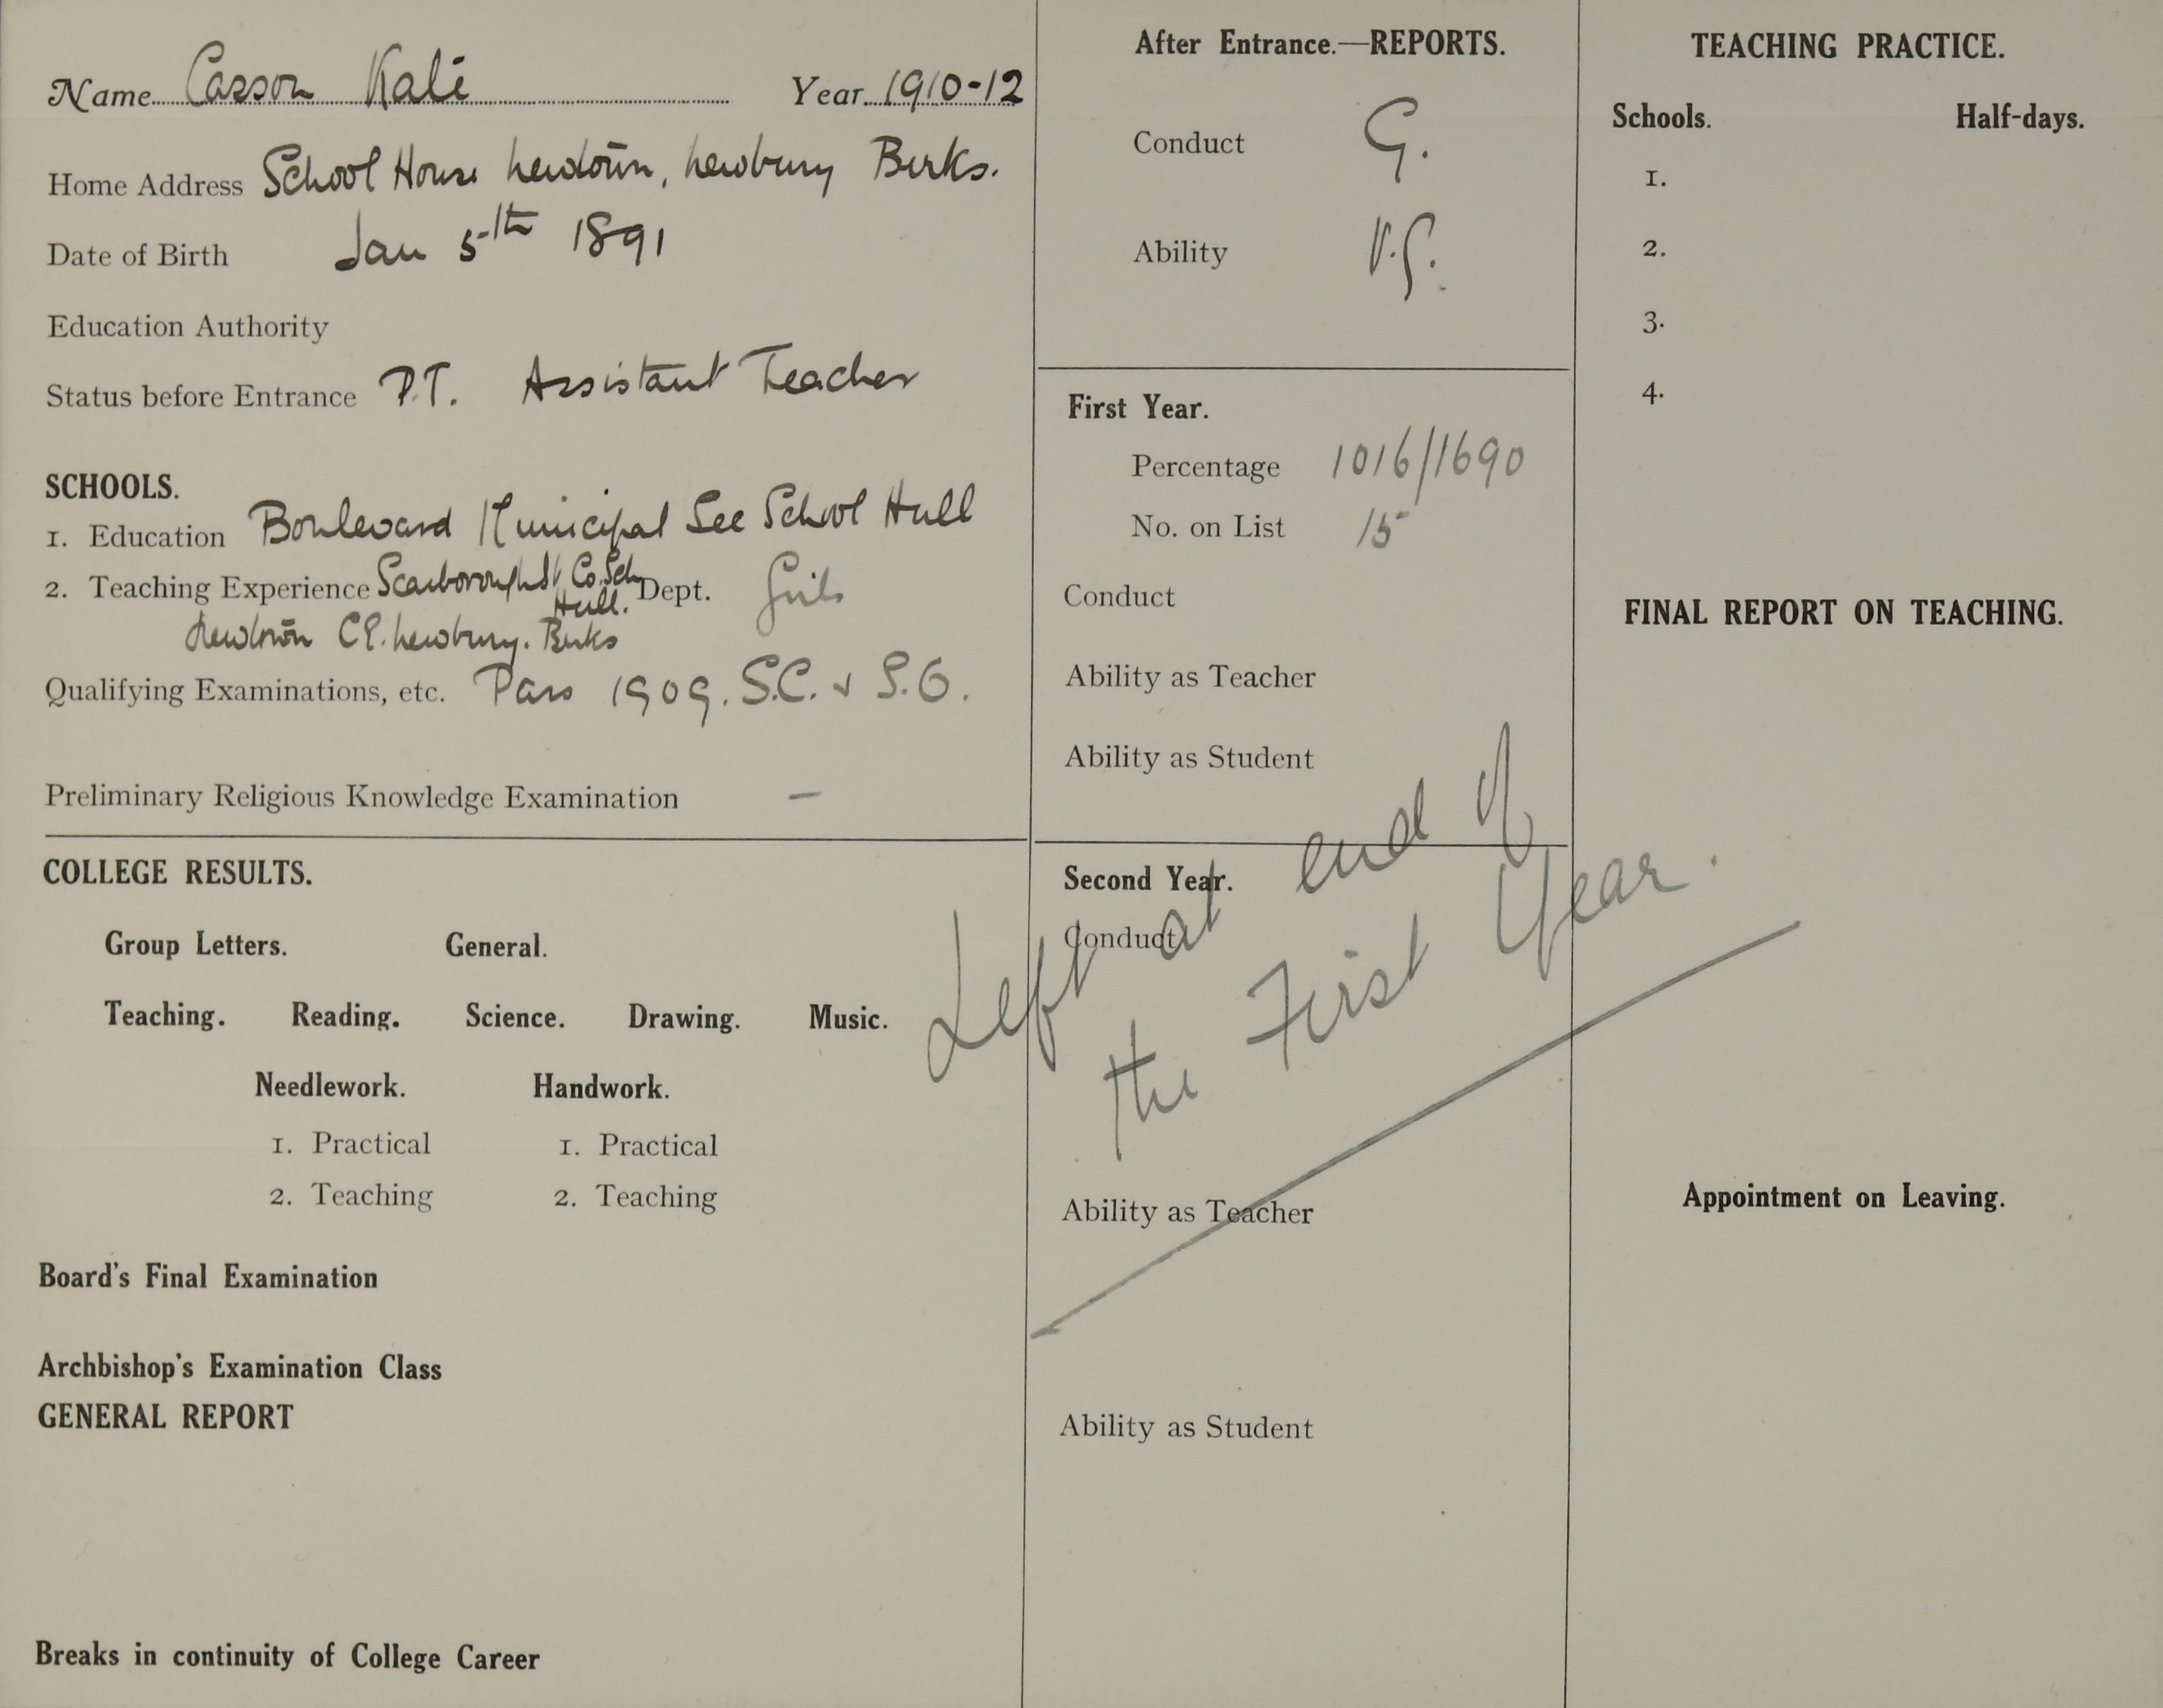 Name Casson Kate Year 1910-12
Home Address School House Newtown, Newbury Berks.
Date of Birth Jan 5th 1891
Education Authority
Status before Entrance P.T. Assistant Teacher
SCHOOLS.
1. Education Boulevard Municipal Sec School Hull
2. Teaching Experience Scarborough St Co. Sch Hull. Dept. Girls
Newtown CE. Newbury. Berks
Qualifying Examinations, etc. Pass 1909. S.C. &
Preliminary Religious Knowledge Examination –
COLLEGE RESULTS.
Group Letters. General.
Teaching. Reading. Science. Drawing. Music.
Needlework. Handwork.
1. Practical 1. Practical
2. Teaching 2. Teaching
Board's Final Examination
Archbishop's Examination Class
GENERAL REPORT
Breaks in continuity of College Career
After Entrance.—REPORTS.
Conduct G.
Ability V.G.
First Year.
Percentage 1016/1690
No. on List 15
Conduct
Ability as Teacher
Ability as Student
Second Year.
Conduct
Left at end of
the First Year.
Ability as Teacher
Ability as Student
TEACHING PRACTICE.
Schools. Half-days.
1.
2.
3.
4.
FINAL REPORT ON TEACHING.
Appointment on Leaving.